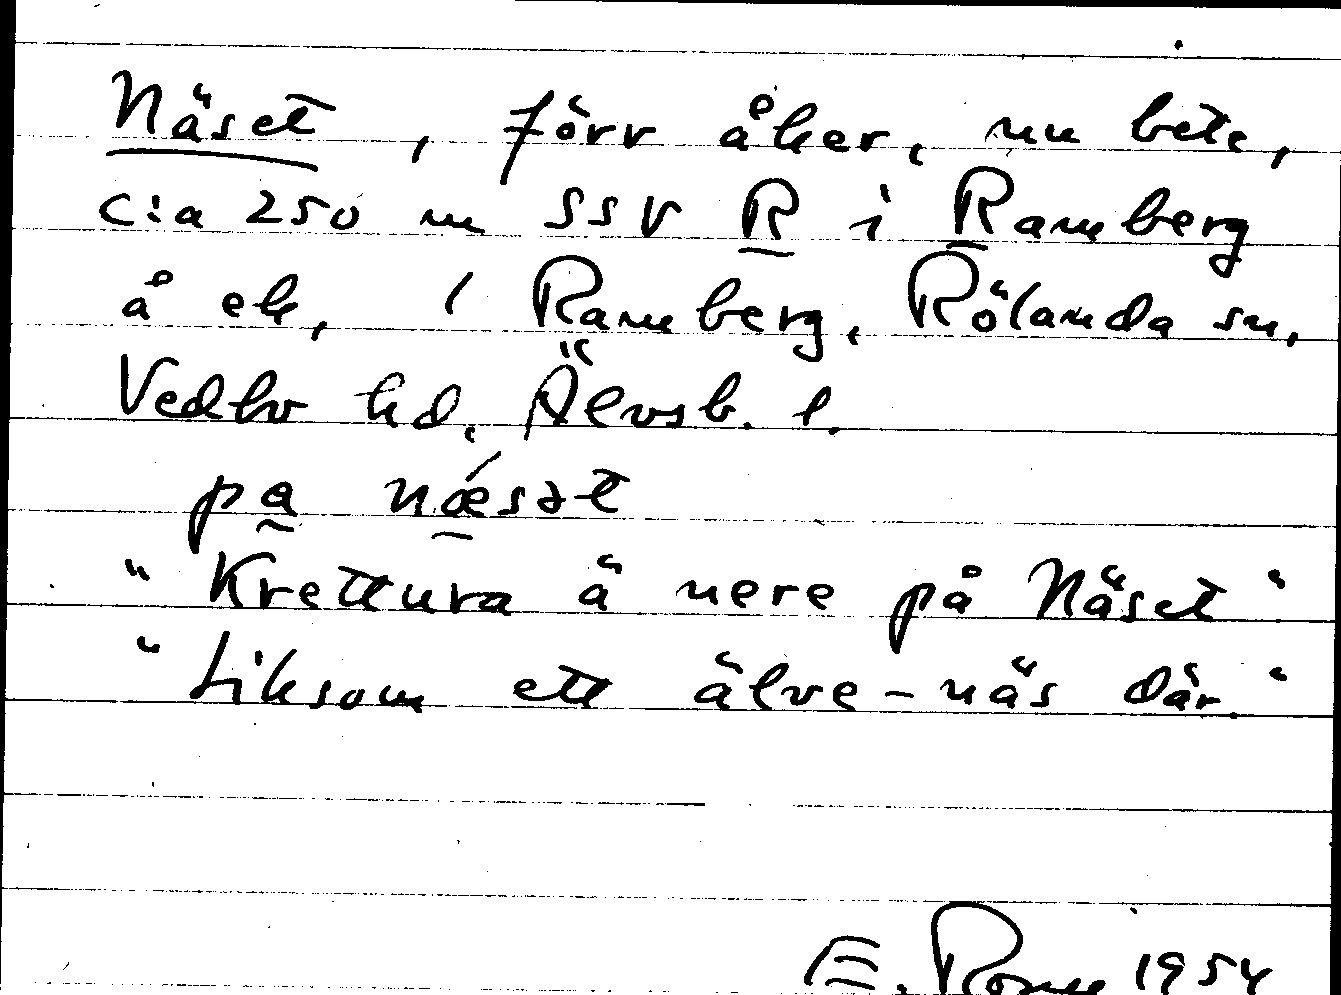 Näset, förr åker, nu bete,
c:a 250 m SSV R i Ramberg
å ek, i Ramberg, Rölanda sn,
Vedbo hd, Älvsb. l.
pa næsət
"Krettura ä nere på Näset"
"Liksom ett älve-näs där."
E. 1954